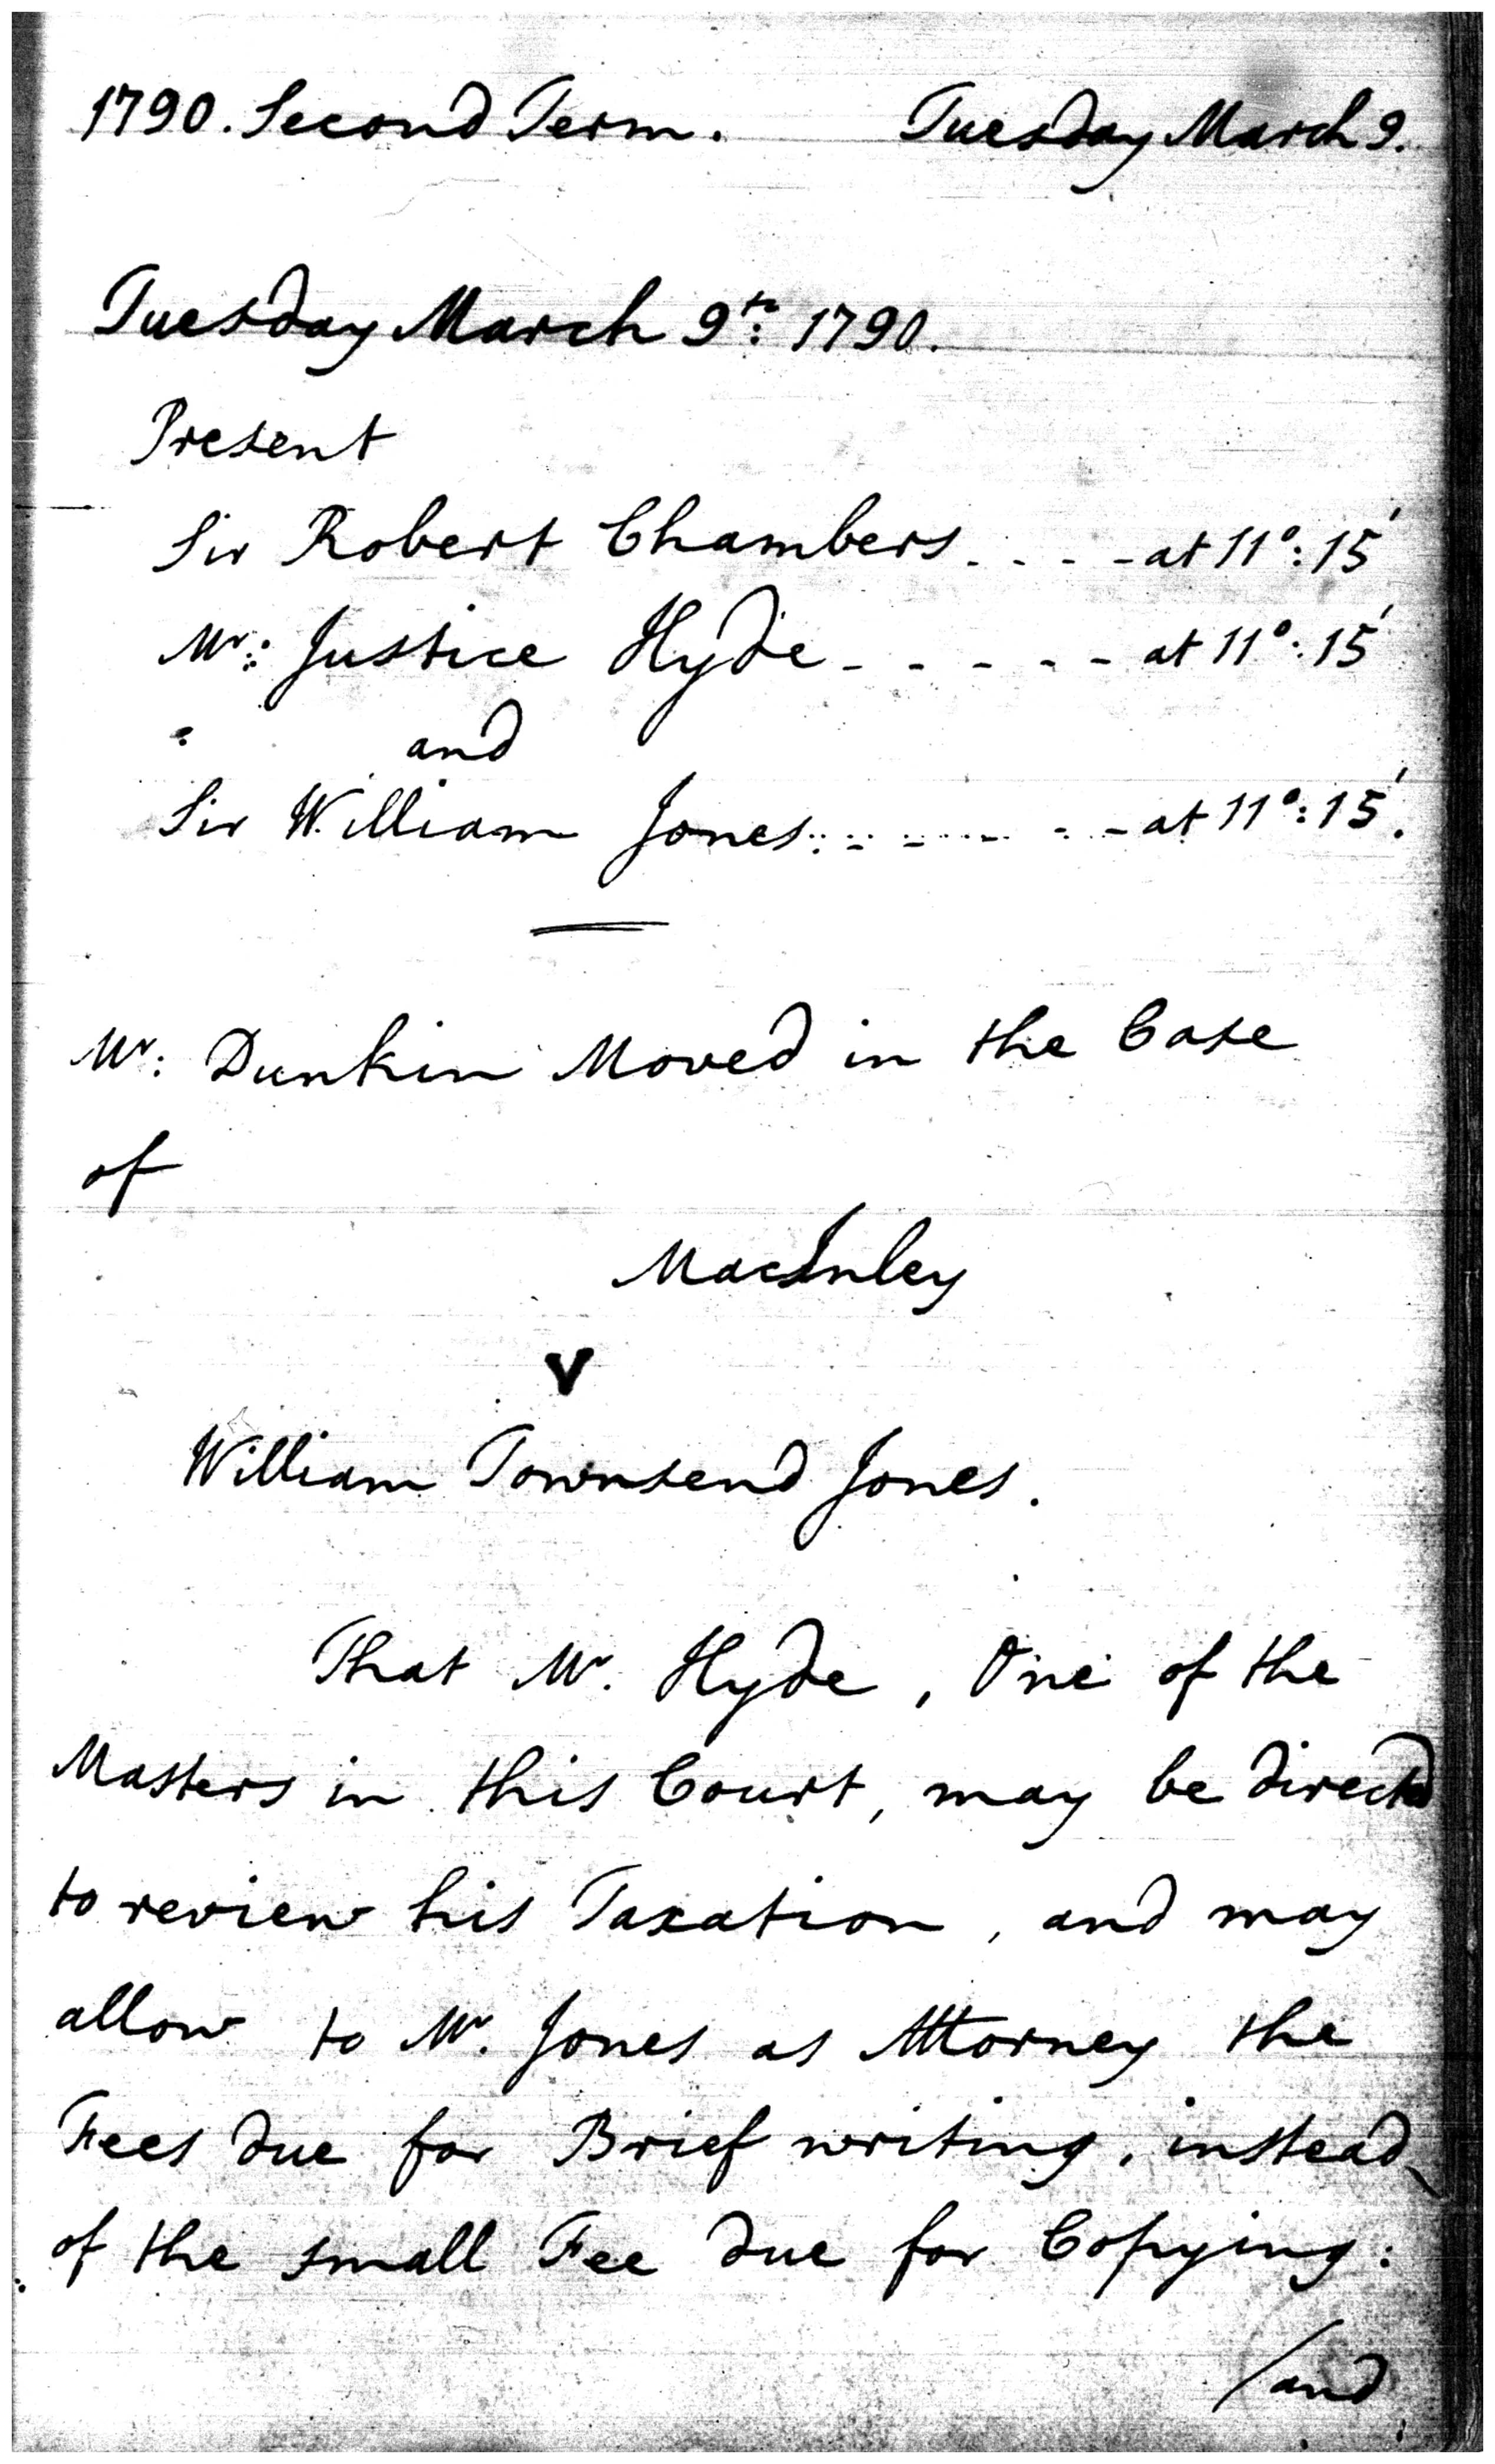 1790. Second Term. Tuesday March 9.
Tuesday March 9th: 1790.
Present
Sir Robert Chambers. - - - at 11°: 15'
Mr: Justice Hyde - - - - - at 11°: 15'
and
Sir William Jones. - - - - - at 11°: 15'.
Mr: Dunkin Moved in the Case
of
MacInley
V
William Townsend Jones.
That Mr. Hyde, One of the
Masters in this Court, may be directed
to review his Taxation, and may
allow to Mr. Jones as Attorney the
Fees due for Brief writing, instead
of the small Fee due for Copying:
/and